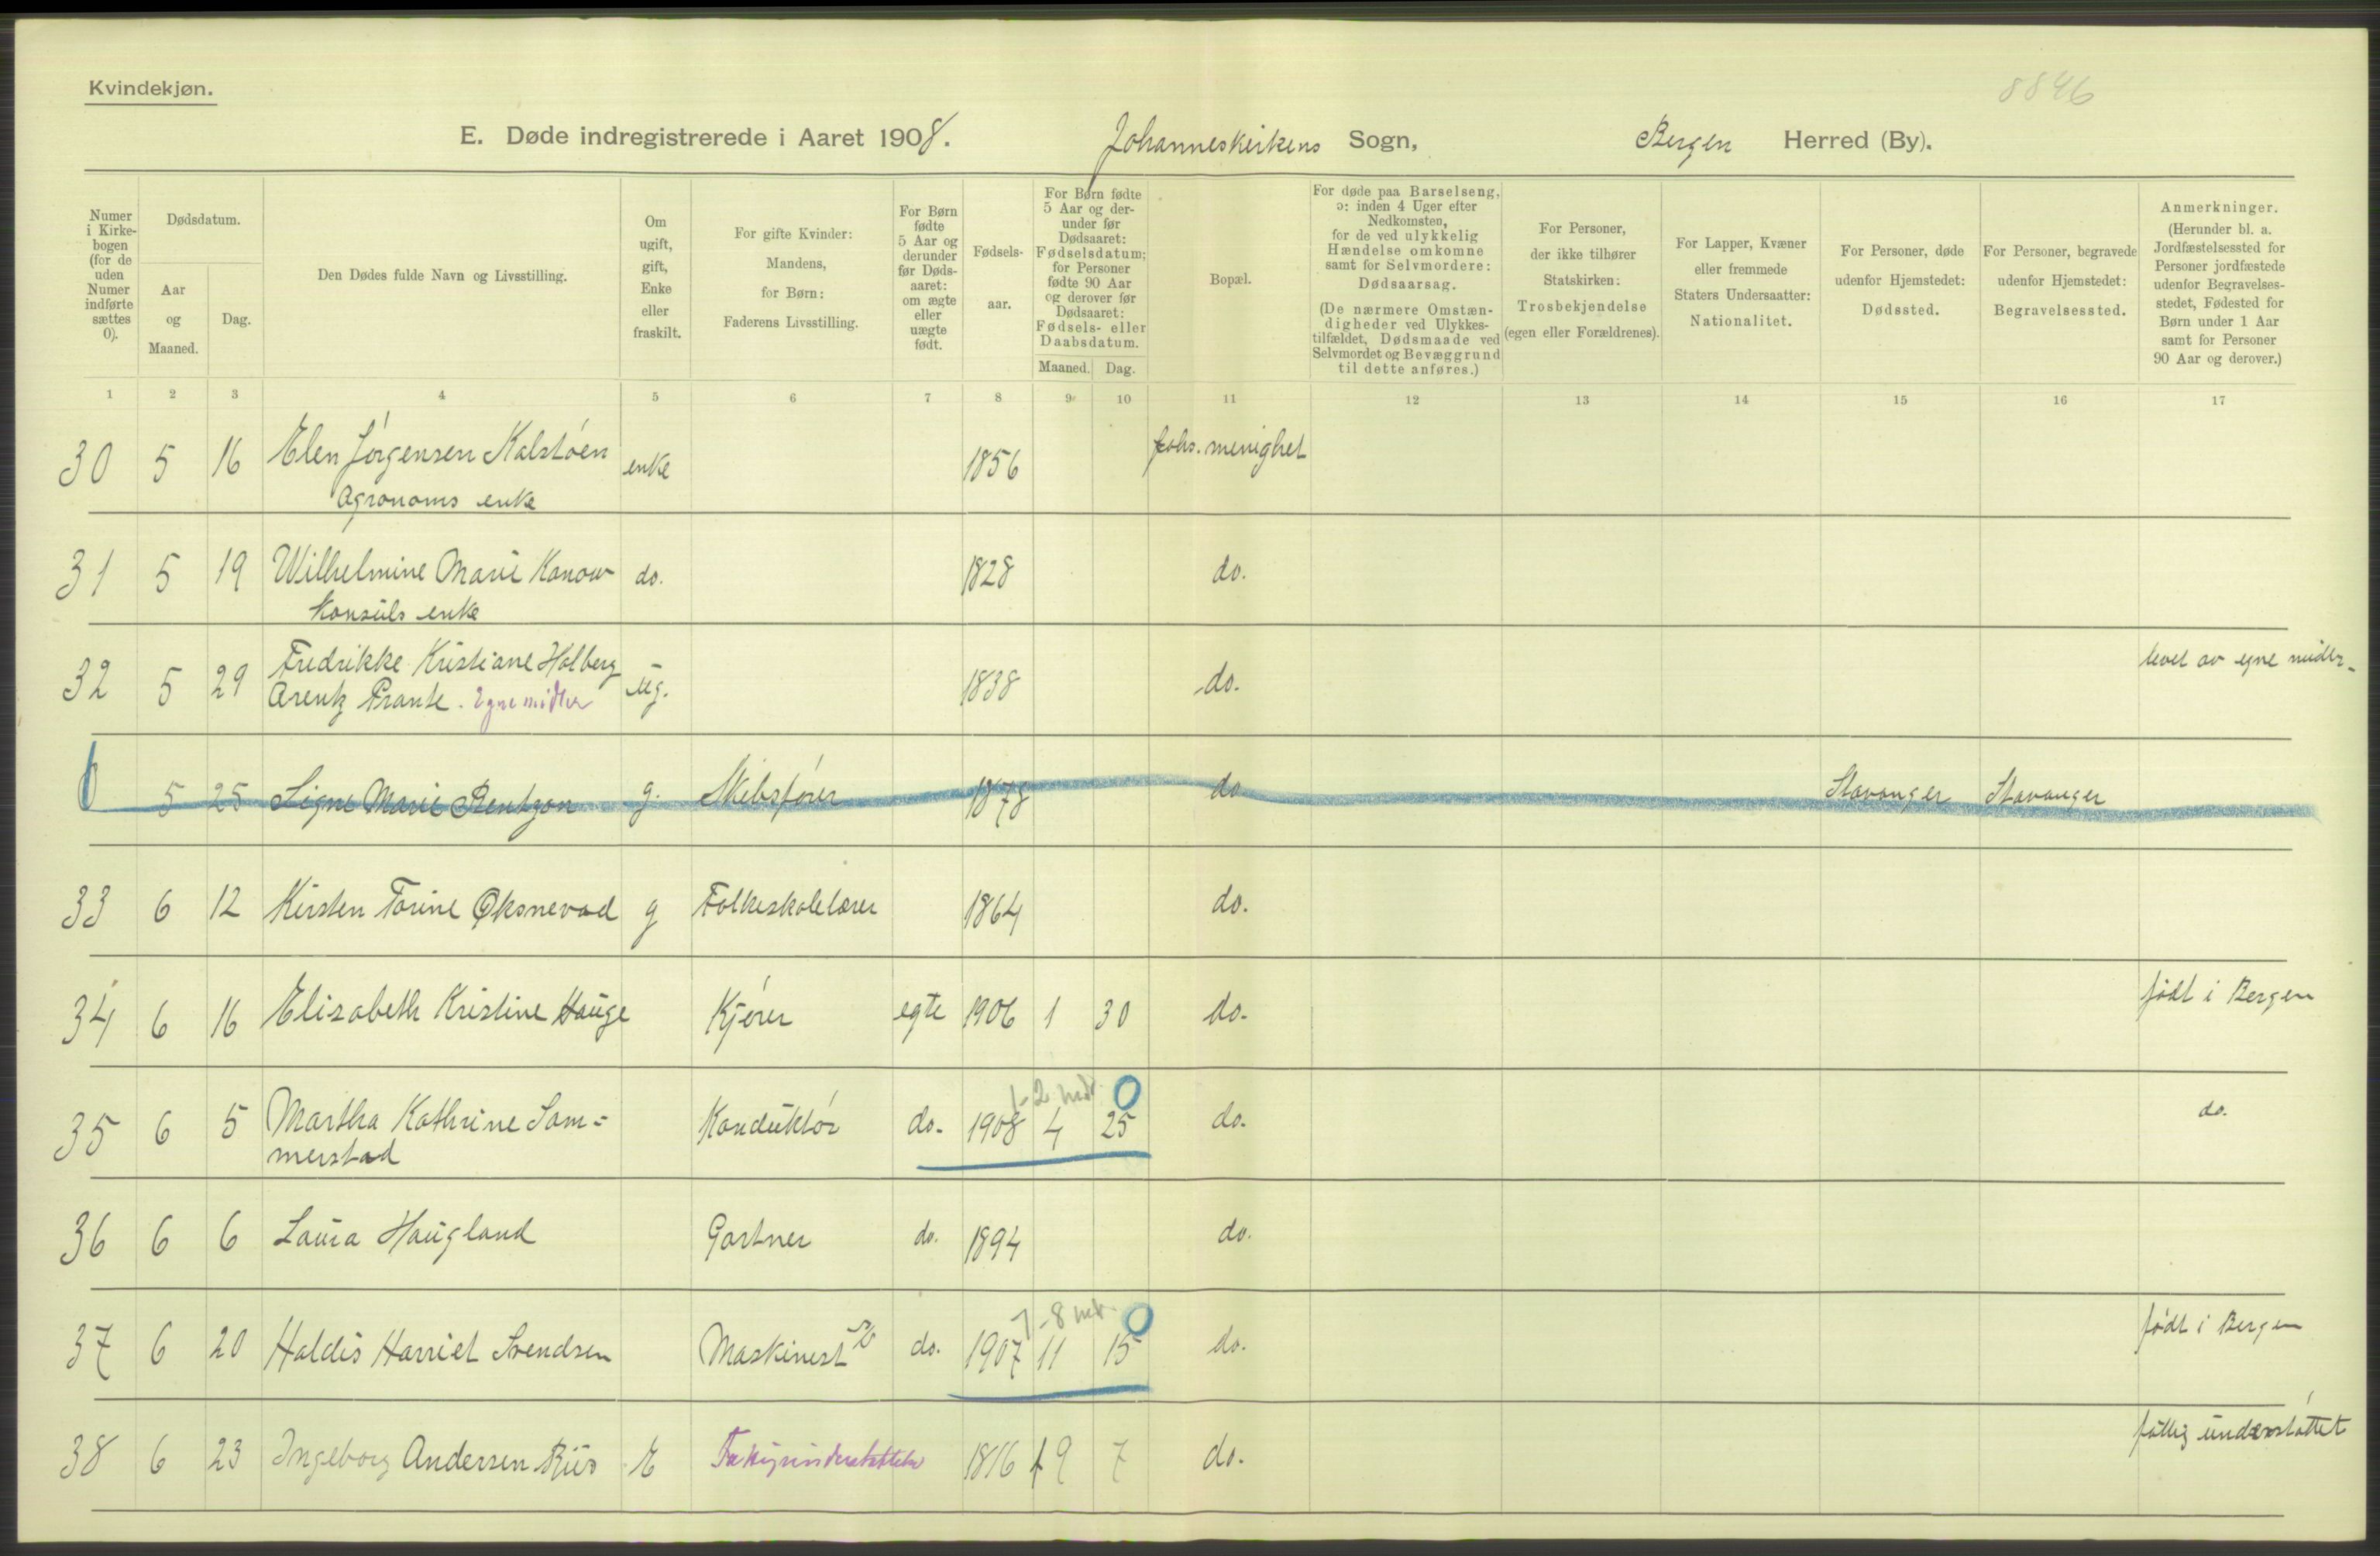 Kvindekjøn.
8846
E. Døde indregistrerede i Aaret 1908. Johanneskirkens Sogn, Bergen Herred (By).
Numer i Kirkebogen (for de uden Numer indførte sættes 0).
Dødsdatum.
Aar og Maaned.
Dag.
Den Dødes fulde Navn og Livsstilling.
Om ugift, gift, Enke eller fraskilt.
For gifte Kvinder: Mandens, for Børn: Faderens Livsstilling.
For Børn fødte 5 Aar og derunder før Dødsaaret: om ægte eller uægte født.
Fødselsaar.
For Børn fødte 5 Aar og derunder før Dødsaaret: Fødselsdatum; for Personer fødte 90 Aar og derover før Dødsaaret: Fødsels- eller Daabsdatum.
Maaned. Dag.
Bopæl.
For døde paa Barselseng, ɔ: inden 4 Uger efter Nedkomsten, for de ved ulykkelig Hændelse omkomne samt for Selvmordere: Dødsaarsag.
(De nærmere Omstændigheder ved Ulykkestilfældet, Dødsmaade ved Selvmordet og Bevæggrund til dette anføres.)
For Personer, der ikke tilhører Statskirken: Trosbekjendelse (egen eller Forældrenes).
For Lapper, Kvæner eller fremmede Staters Undersaatter: Nationalitet.
For Personer, døde udenfor Hjemstedet: Dødssted.
For Personer, begravede udenfor Hjemstedet: Begravelsessted.
Anmerkninger. (Herunder bl. a. Jordfæstelsessted for Personer jordfæstede udenfor Begravelsesstedet, Fødested for Børn under 1 Aar samt for Personer 90 Aar og derover.)
1 2 3 4 5 6 7 8 9 10 11 12 13 14 15 16 17
30 5 16 Elen Jørgensen Kalstøen enke 1856 Johs. menighet
Agronoms enke
31 5 19 Wilhelmine Marie Konow do. 1828 do.
Konsuls enke
32 5 29 Fredrikke Kristiane Holberg ug. 1838 do. levet av egne midler
Arentz Prante. Egne midler
0 5 25 Signe Marie Bentzon g. Skibsfører 1878 do Stavanger Stavanger
33 6 12 Kirsten Torine Øksnevad g Folkeskolelærer 1864 do.
34 6 16 Elisabeth Kristine Hauge Kjører egte 1906 1 30 do. født i Bergen
1-2 mdr. 0
35 6 5 Martha Kathrine Som= Konduktør do. 1908 4 25 do. do.
merstad
36 6 6 Laura Haugland Gartner do. 1894 do.
7-8 mdr. 0
37 6 20 Haldis Harriet Svendsen Maskinist do. 1907 11 15 do. født i Bergen
38 6 23 Ingeborg Andersen Riis E Fattigunderstøttelse 1816 9 7 do. fattig understøttet